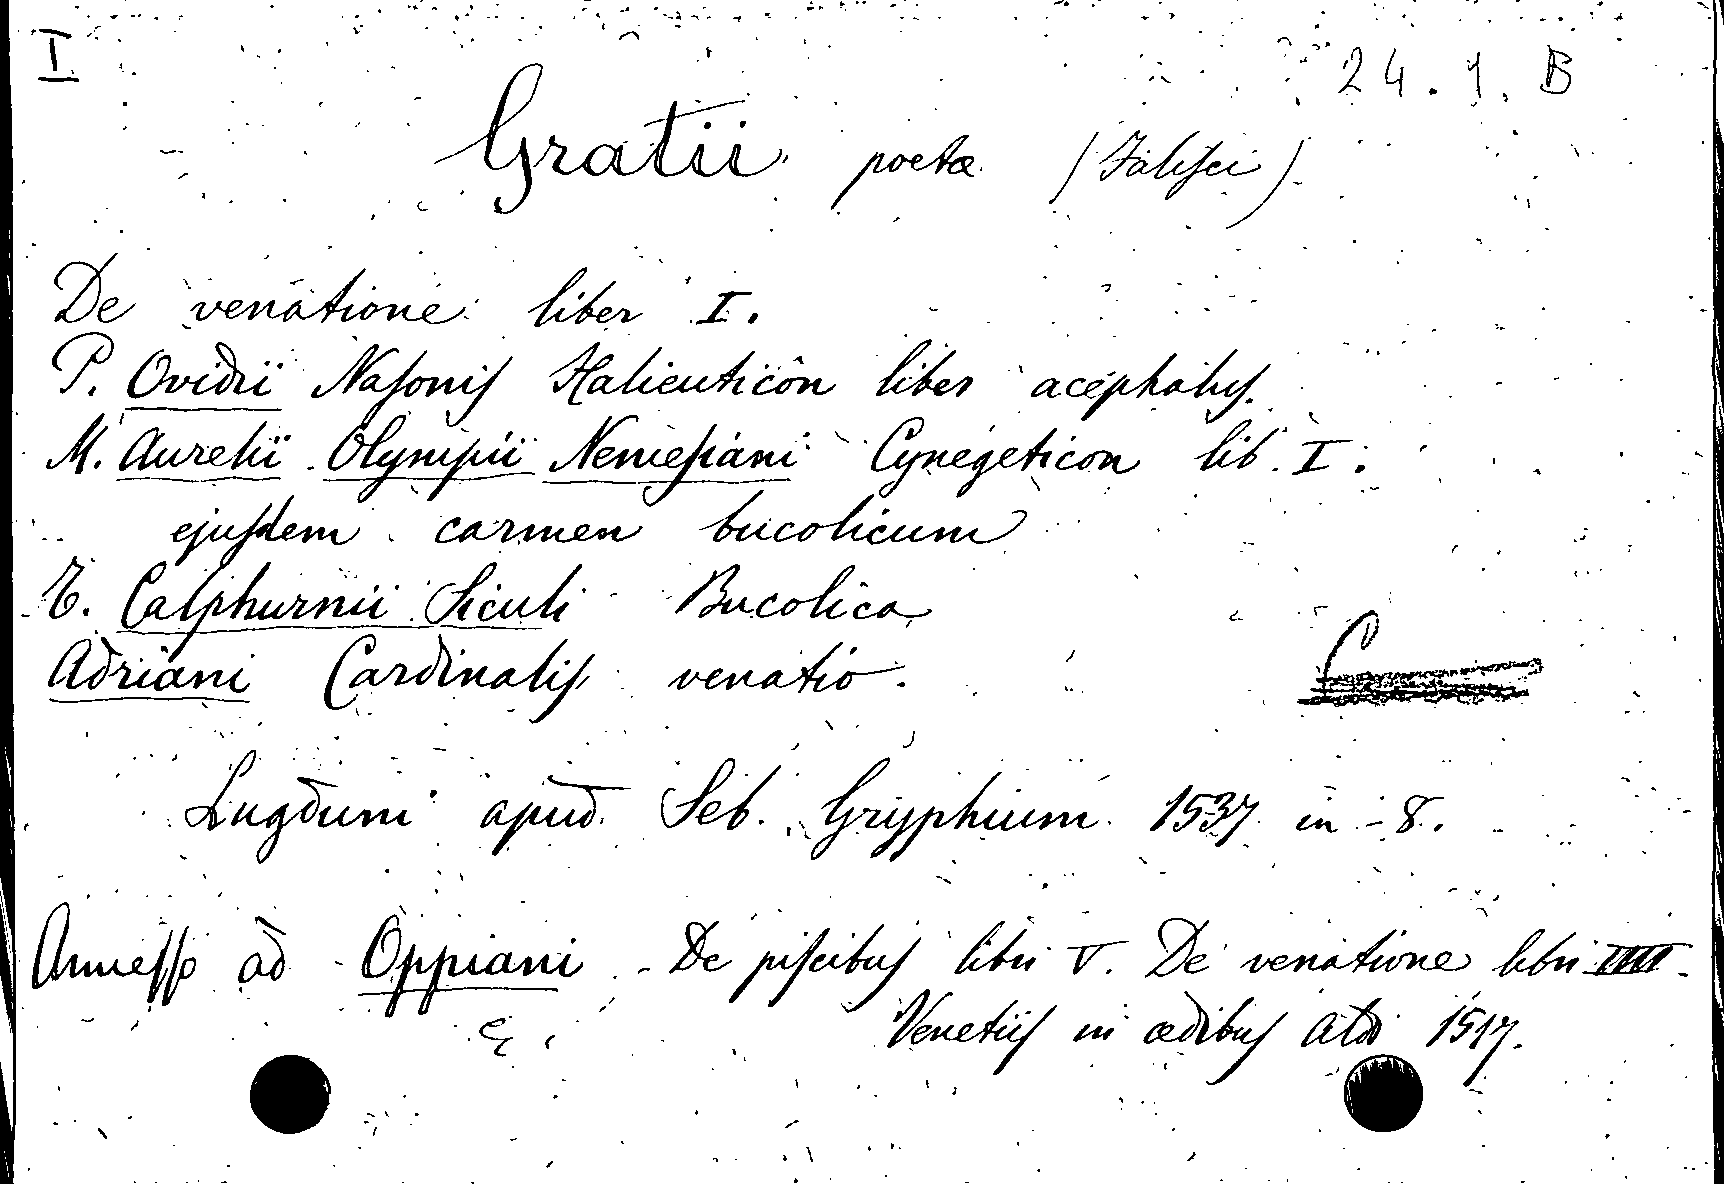 I
24. 9. B
Gratii poetæ (Falisci)
De venatione liber I.
P. Ovidii Nasonis Halieuticôn liber acephalus.
M. Aurelii Olympii Nemesiani Cynegeticon lib. I.
ejusdem carmen bucolicum
T. Calphurnii Siculi Bucolica
Adriani Cardinalis venatio.
Lugduni apud Seb. Gryphium 1537 in-8.
Annesso ad Oppiani De piscibus libri V. De venatione libri IIII.
Venetiis in ædibus Aldi 1517.